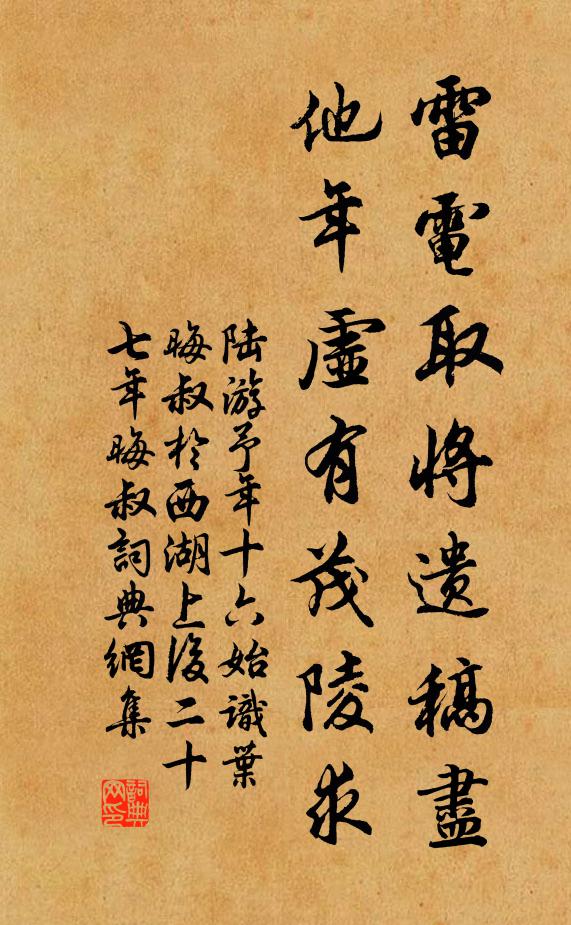 雷電取將遺稿盡
他年虛有茂陵求
陸游予年十六始識葉
晦叔於西湖上後二十
七年晦叔詞典網集
詞典网印